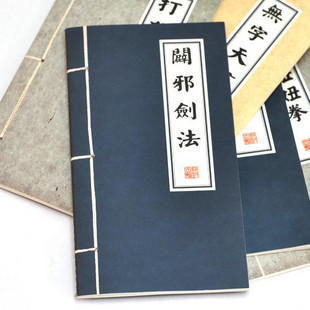 闢邪劍法
打
無字天
拳